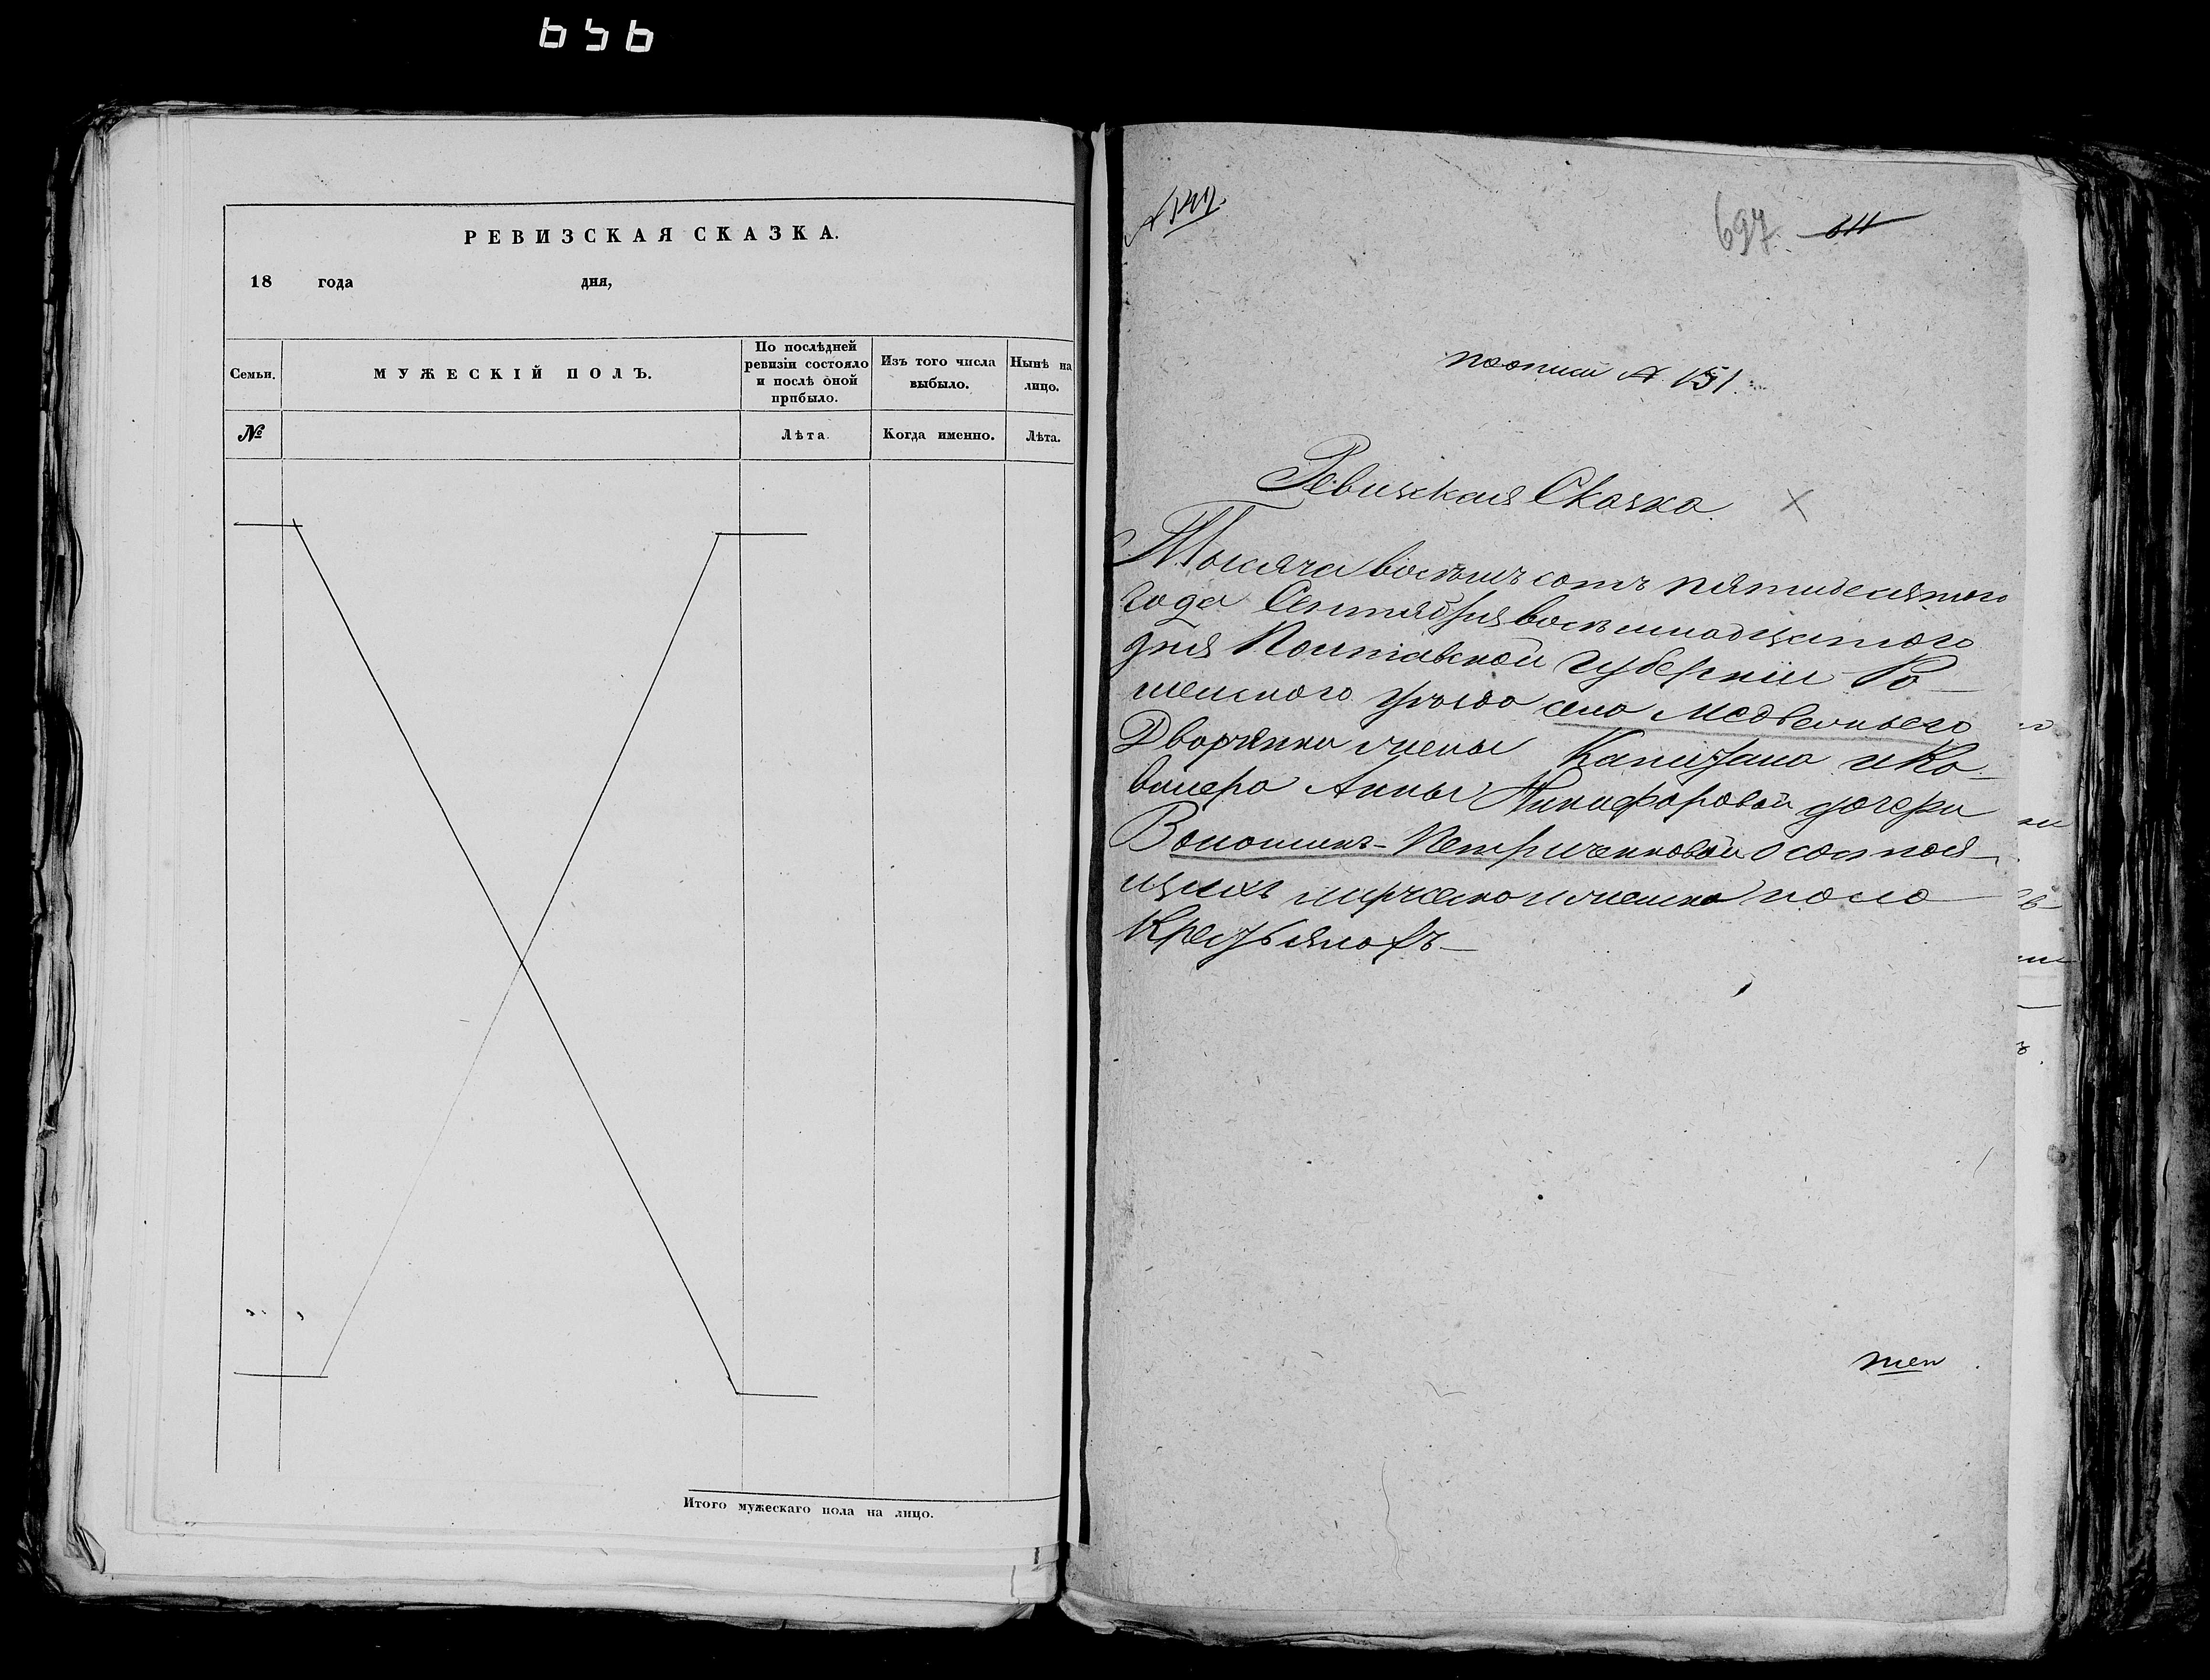 656
РЕВИЗСКАЯ СКАЗКА.
18 года дня,
Семьи.
МУЖЕСКІЙ ПОЛЪ.
По послѣдней
ревизіи состояло
и послѣ оной
прибыло.
Изъ того числа
выбыло.
Нынѣ на
лицо.
№
Лѣта.
Когда именно.
Лѣта.
Итого мужескаго пола на лицо.
697 611
№ 151.
Ревизская Сказка
Тысяча восѣмъ сотъ пятидесятого
года Сентября восѣмнадцятого
дня Полтавской Губерніи Ро-
менского уѣзда села Медвежьего
Дворянки жены Капитана и Ка-
валера Анны Никифоровой дочери
Волошинъ-Петриченковой о состоя-
щихъ мужеска и женска пола
Крестьянахъ